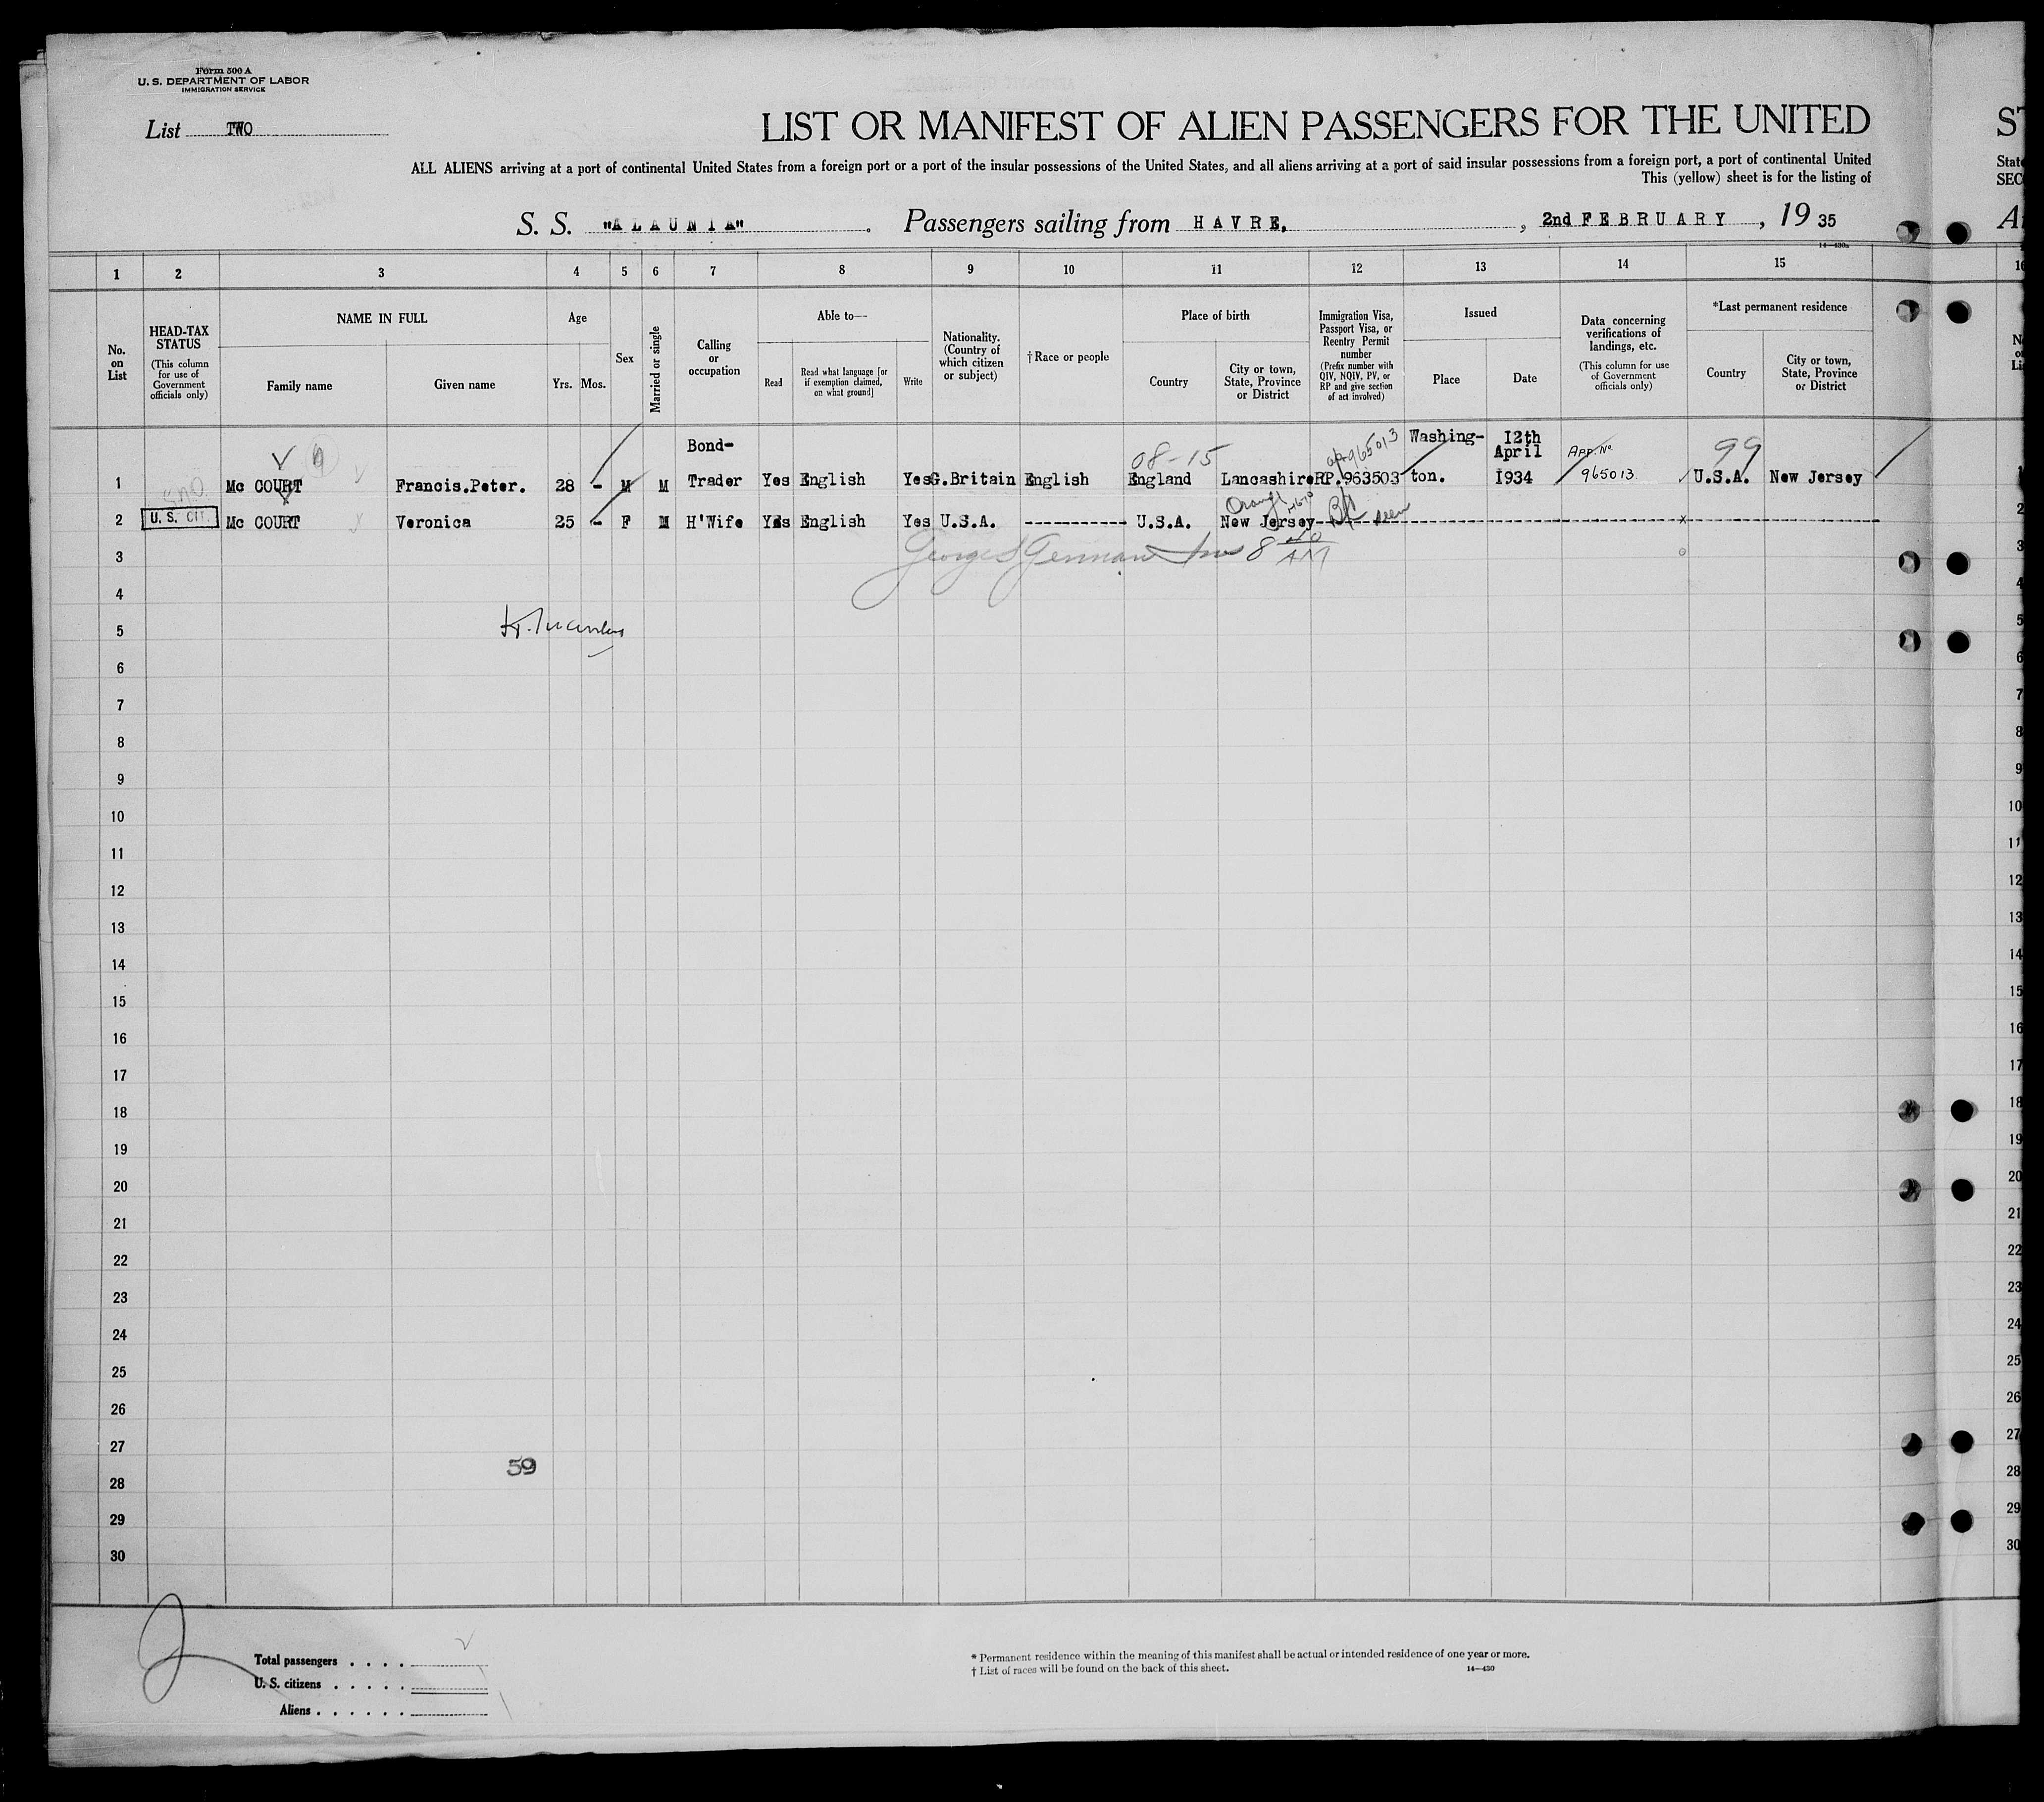 Form 500 A
U. S. DEPARTMENT OF LABOR
IMMIGRATION SERVICE
List TWO
LIST OR MANIFEST OF ALIEN PASSENGERS FOR THE UNITED
ST
ALL ALIENS arriving at a port of continental United States from a foreign port or a port of the insular possessions of the United States, and all aliens arriving at a port of said insular possessions from a foreign port, a port of continental United
State
This (yellow) sheet is for the listing of
SEC
S. S. "ALAUNIA" . Passengers sailing from HAVRE. , 2nd FEBRUARY , 19 35
14—430a
1 2 3 4 5 6 7 8 9 10 11 12 13 14 15
No. on List
HEAD-TAX STATUS
(This column for use of Government officials only)
NAME IN FULL
Family name
Given name
Age
Yrs. Mos.
Sex
Married or single
Calling or occupation
Able to—
Read
Read what language [or if exemption claimed, on what ground]
Write
Nationality. (Country of which citizen or subject)
†Race or people
Place of birth
Country
City or town, State, Province or District
Immigration Visa, Passport Visa, or Reentry Permit number
(Prefix number with QIV, NQIV, PV, or RP and give section of act involved)
Issued
Place
Date
Data concerning verifications of landings, etc.
(This column for use of Government officials only)
*Last permanent residence
Country
City or town, State, Province or District
Bond- 08-15 965013 Washing- 12th April App. No. 99
1 Mc COURT Francis.Peter. 28 - M M Trader Yes English Yes G.Britain English England Lancashire RP.963503 ton. 1934 965013 U.S.A. New Jersey
Orange
2 U. S. CIT. Mc COURT Veronica 25 - F M H'Wife Yes English Yes U.S.A. ----------- U.S.A. New Jersey
George S German 8 AM
3
4
5
6
7
8
9
10
11
12
13
14
15
16
17
18
19
20
21
22
23
24
25
26
27
59
28
29
30
Total passengers . . . .
U. S. citizens . . . . .
Aliens . . . . . .
* Permanent residence within the meaning of this manifest shall be actual or intended residence of one year or more.
† List of races will be found on the back of this sheet. 14—430